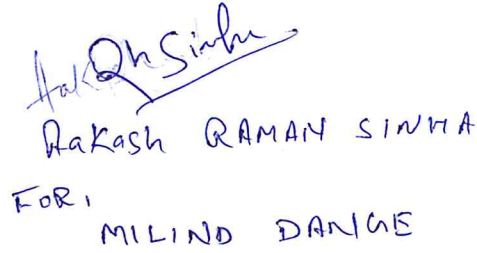 Aakash Sinha
Aakash RAMAN SINHA
FOR,
MILIND DANGE